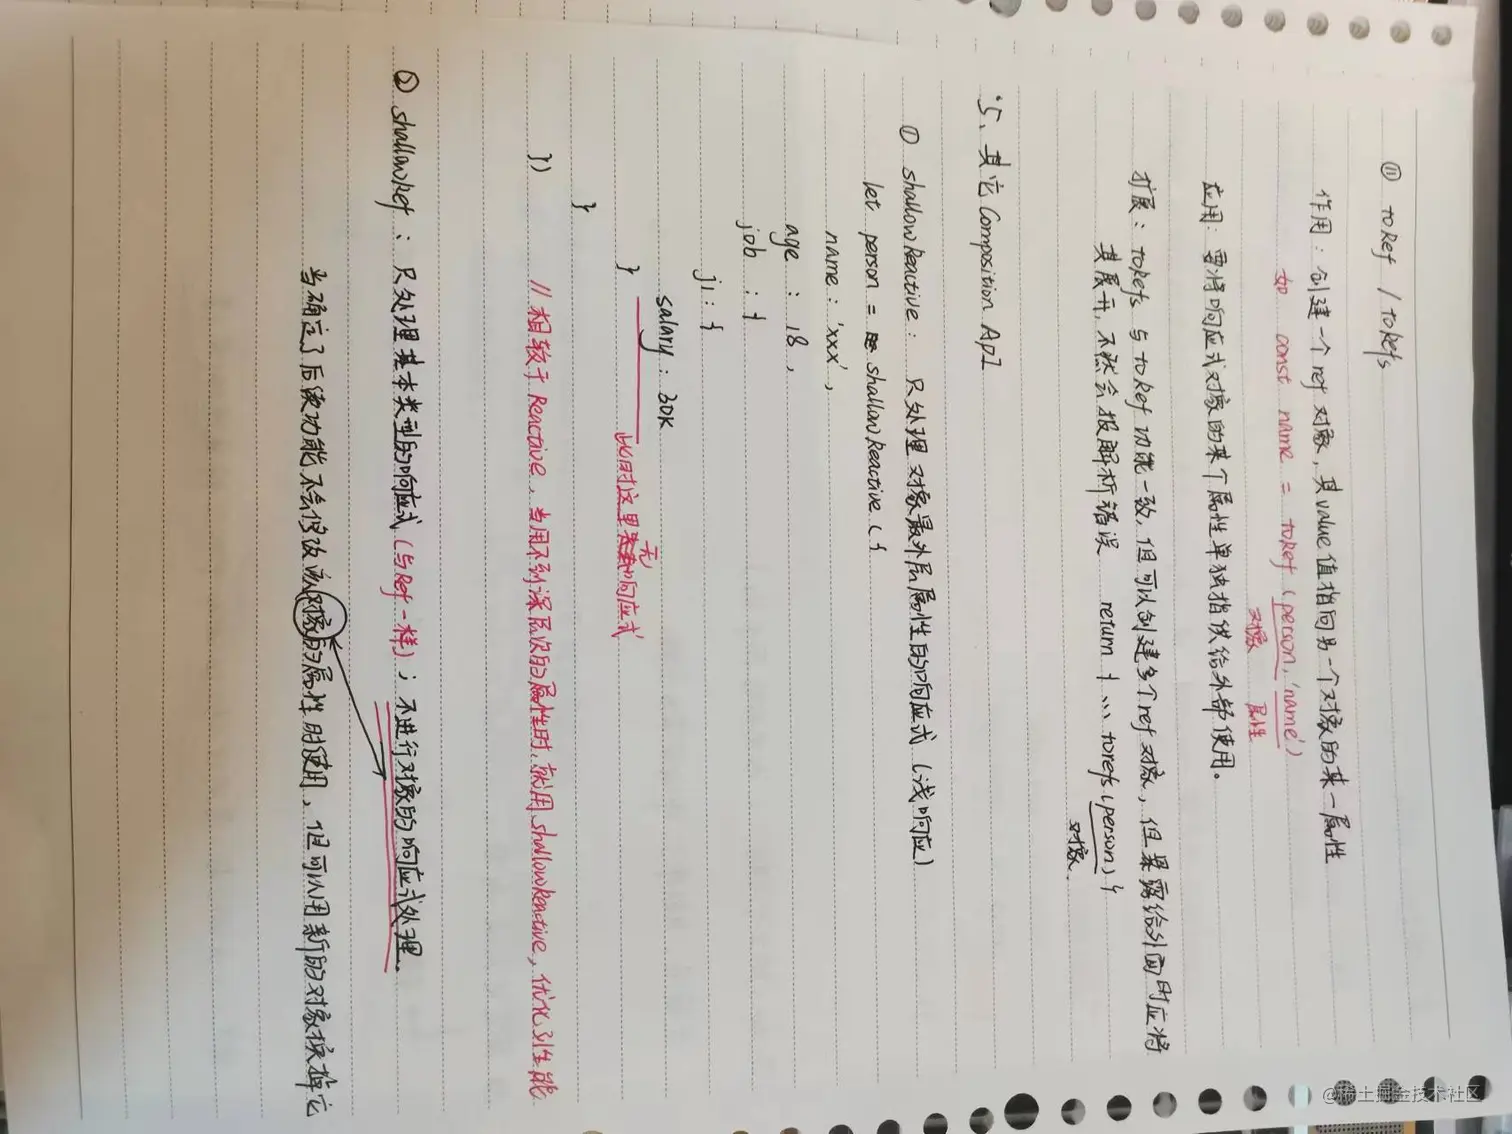 ⑪ toRef / toRefs
作用：创建一个ref对象，其value值指向另一个对象的某一属性
如 const name = toRef (person, 'name')
对象 属性
应用：要将响应式对象的某个属性单独提供给外部使用。
扩展：toRefs 与 toRef功能一致，但可以创建多个ref对象，但暴露给外面时应将
其展开，不然会报解析错误 return { ... torefs(person) }
对象.
5、其它Composition ApI
① shallowReactive： 只处理对象最外层属性的响应式（浅响应）
let person = shallowReactive ({
name：'xxx'，
age：18，
job：{
j1：{
salary：30K
} 此时这里无响应式
}
}) //相较于Reactive，当用不到深层次的属性时，就用shallowReactive，优化到性能
② shallowRef：只处理基本类型的响应式（与Ref一样）；不进行对象的响应式处理.
当确定了后续功能不会修改该对象的属性时使用，但可以用新的对象换掉它
@稀土掘金技术社区